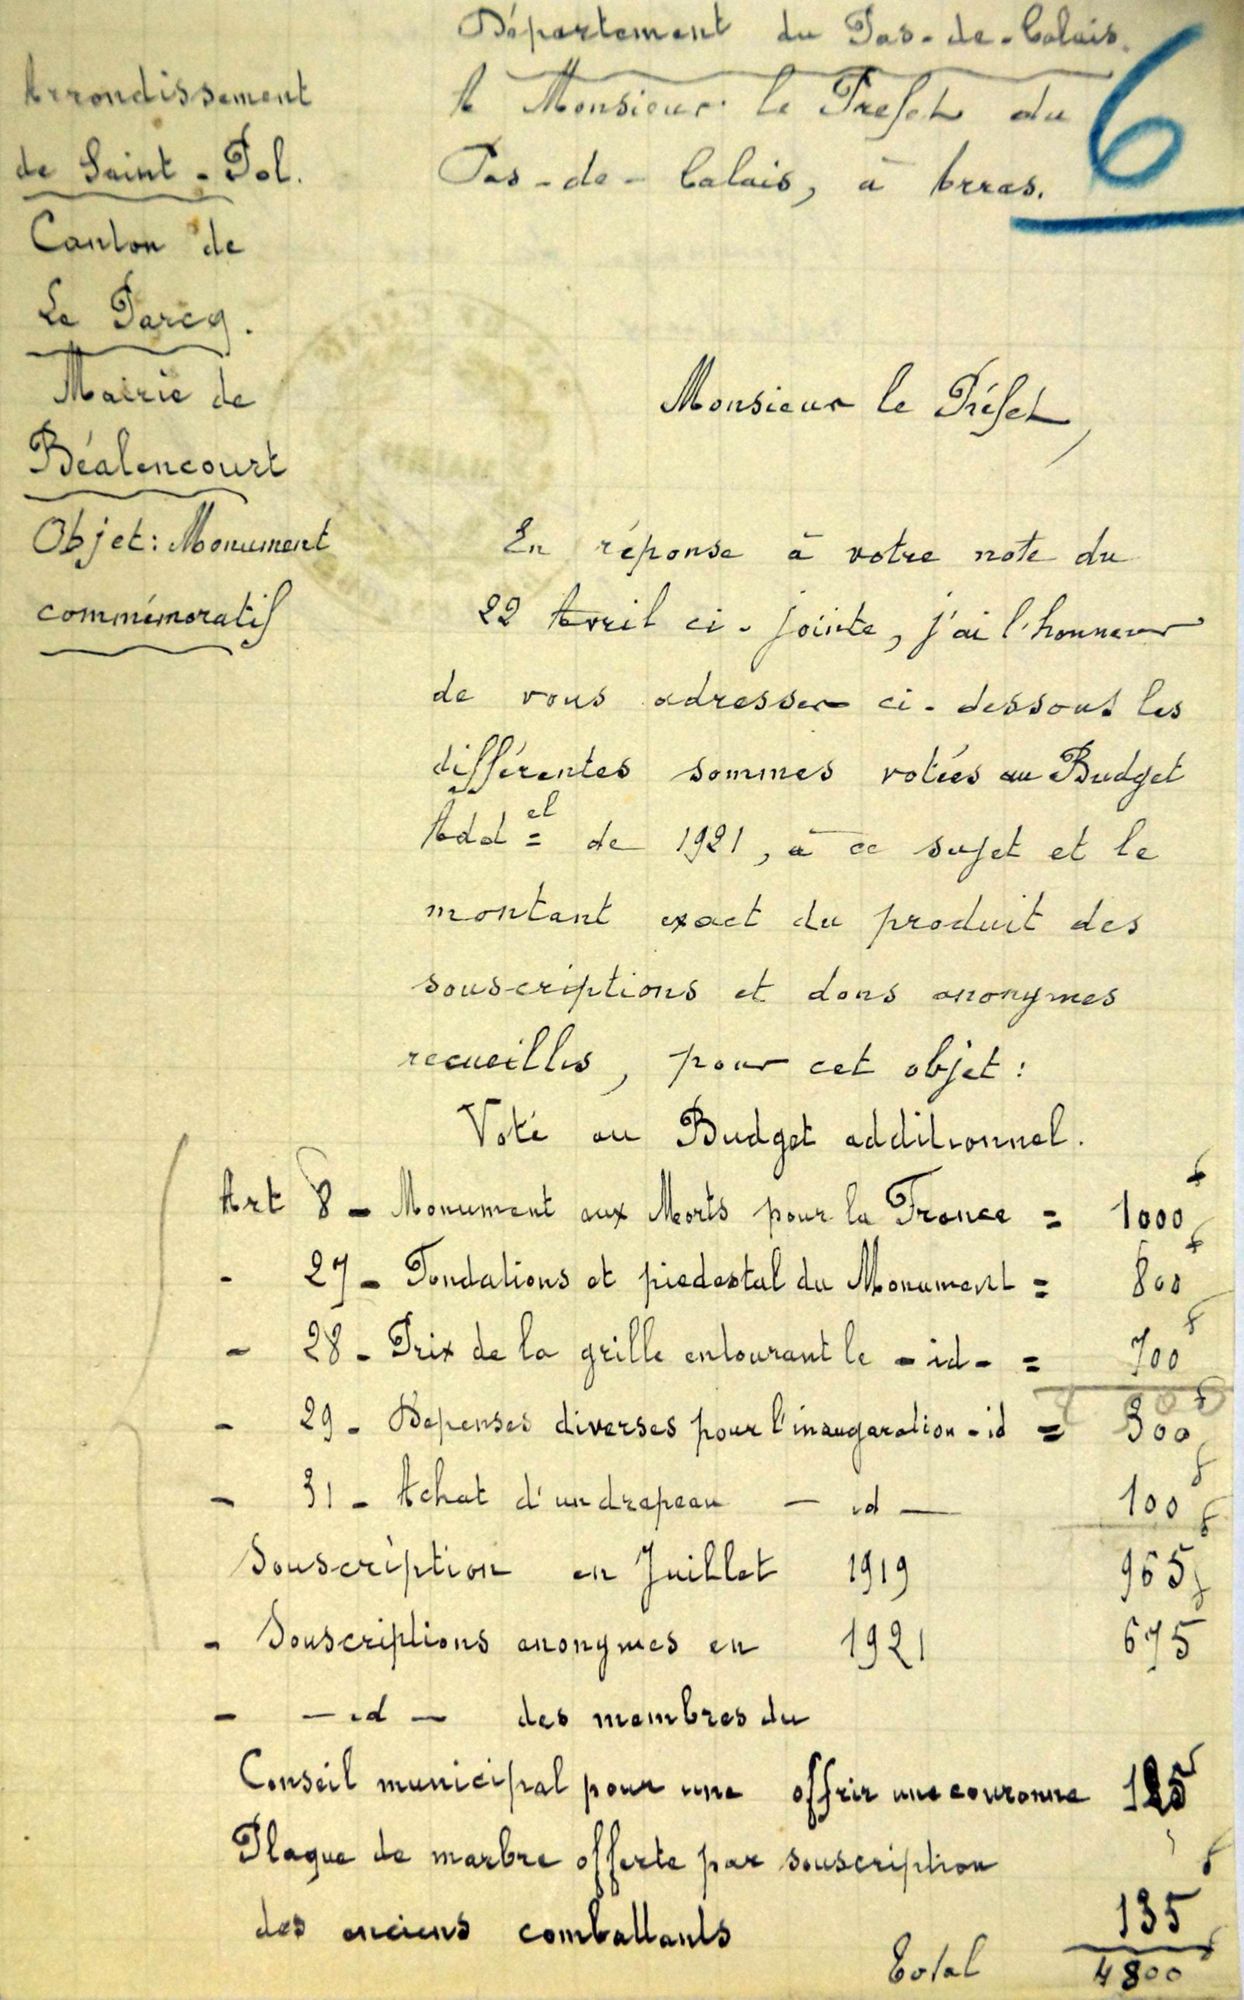 Département du Pas-de-Calais.
Arrondissement
de Saint-Pol.
Canton de
Le Parcq.
Mairie de
Béalencourt
Objet: Monument
commémoratif
A Monsieur le Préfet du
Pas-de-Calais, à Arras.
6
Monsieur le Préfet,
En réponse à votre note du
22 Avril ci-jointe, j'ai l'honneur
de vous adresser ci-dessous les
différentes sommes votées au Budget
Add el de 1921, à ce sujet et le
montant exact du produit des
souscriptions et dons anonymes
recueillis, pour cet objet :
Voté au Budget additionnel.
Art 8 - Monument aux Morts pour la France = 1000 f
- 27 - Fondations et piedestal du Monument = 800 f
- 28 - Prix de la grille entourant le - id - = 700 f
- 29 - Dépenses diverses pour l'inauguration - id = 300 f
- 31 - Achat d'un drapeau - id - 100 f
Souscription en Juillet 1919 965 f
- Souscriptions anonymes en 1921 675 f
- - id - des membres du
Conseil municipal pour une offrir une couronne 125 f
Plaque de marbre offerte par souscription
des anciens combattants 135 f
Total 4800 f